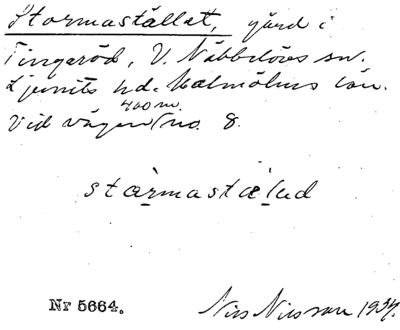 Stormastället, gård i
Tingaröd, V. Nöbbelövs sn.
Ljunits hd. Malmöhus län.
400 m.
Vid vägen / no. 8.
starmastælud
Nr 5664.
Nils Nilsson 1934.